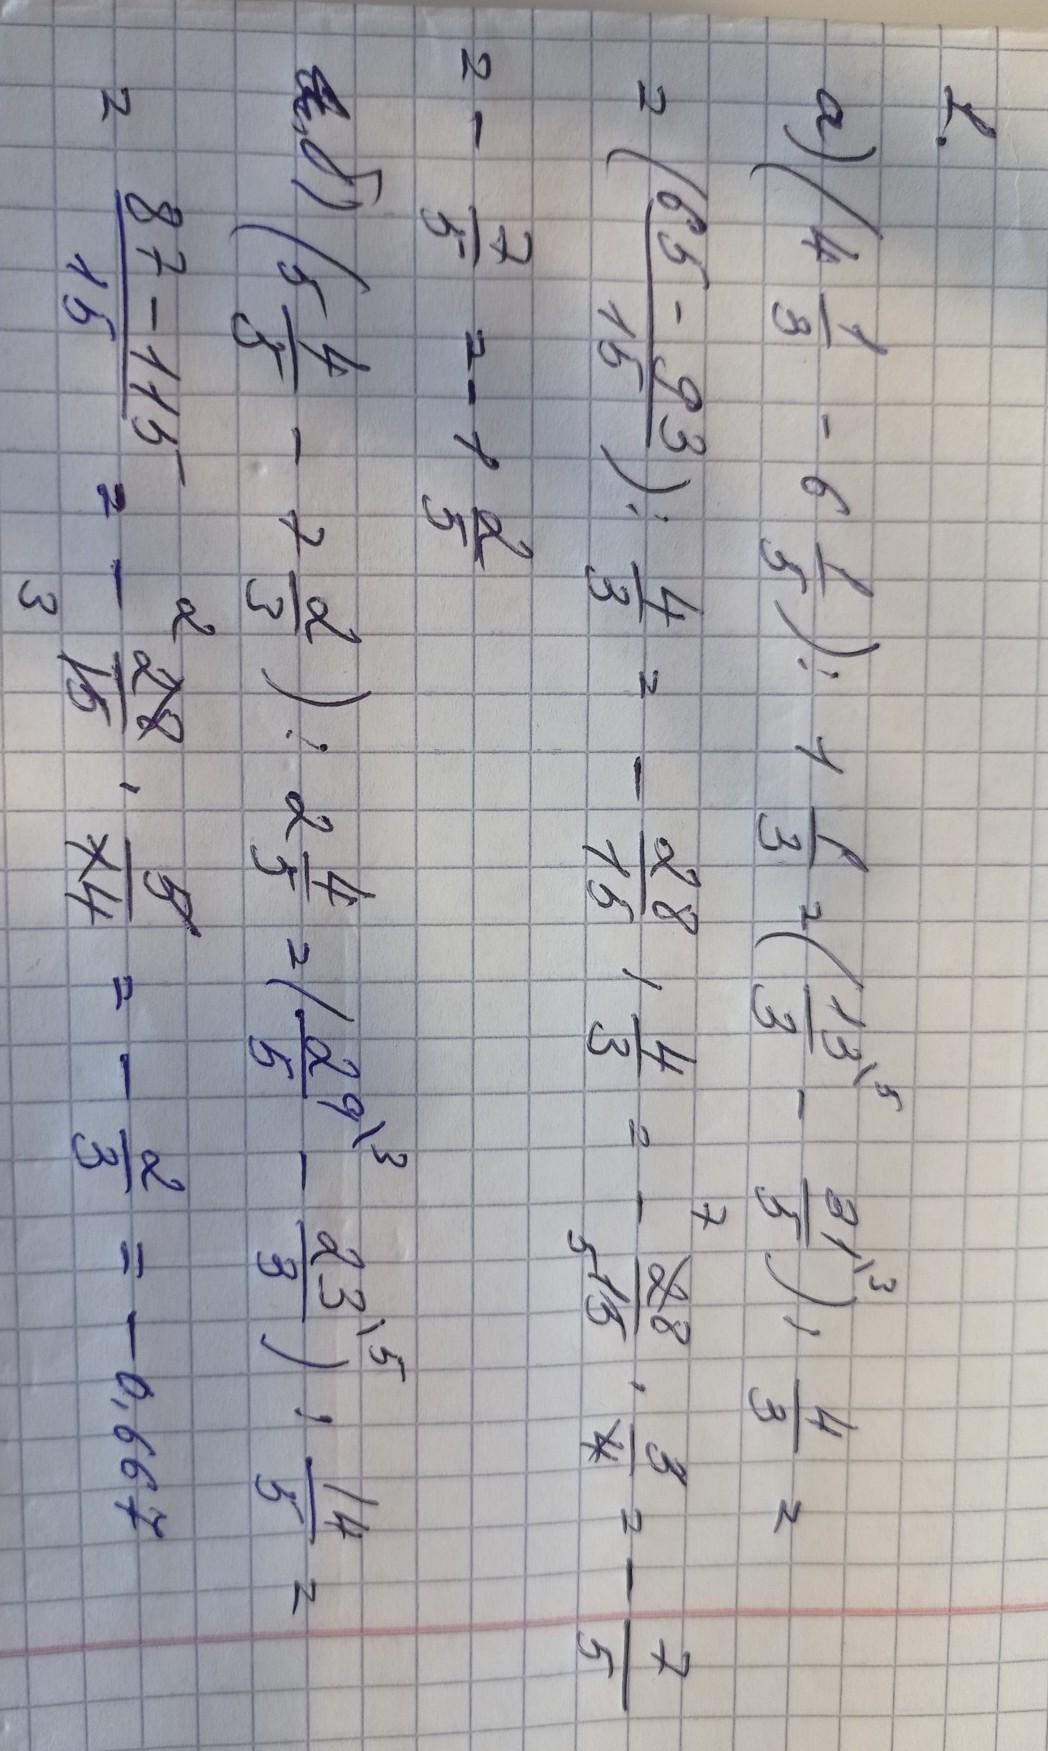 1.
а) (4 1/3 - 6 1/5) : 1 1/3 = (13/3 \5 - 31/5 \3) : 4/3 =
= (65 - 93 / 15) : 4/3 = - 28/15 : 4/3 = - 7 28/5 15 · 3/4 = - 7/5
= - 7/5 = - 1 2/5
б) (5 4/5 - 7 2/3) : 2 4/5 = (29/5 \3 - 23/3 \5) : 14/5 =
= 87 - 115 / 15 = - 2 28/3 15 · 5/14 = - 2/3 = - 0,667